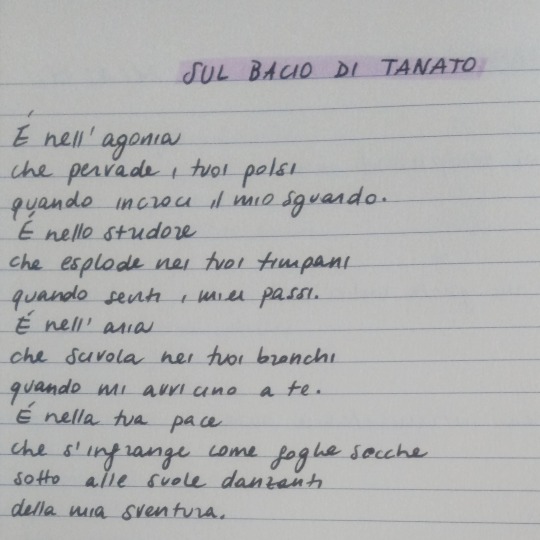 SUL BACIO DI TANATO
É nell'agonia
che pervade i tuoi polsi
quando incroci il mio sguardo.
É nello stridore
che esplode nei tuoi timpani
quando senti i miei passi.
É nell'aria
che scivola nei tuoi bronchi
quando mi avvicino a te.
É nella tua pace
che s'infrange come foglie secche
sotto alle suole danzanti
della mia sventura.